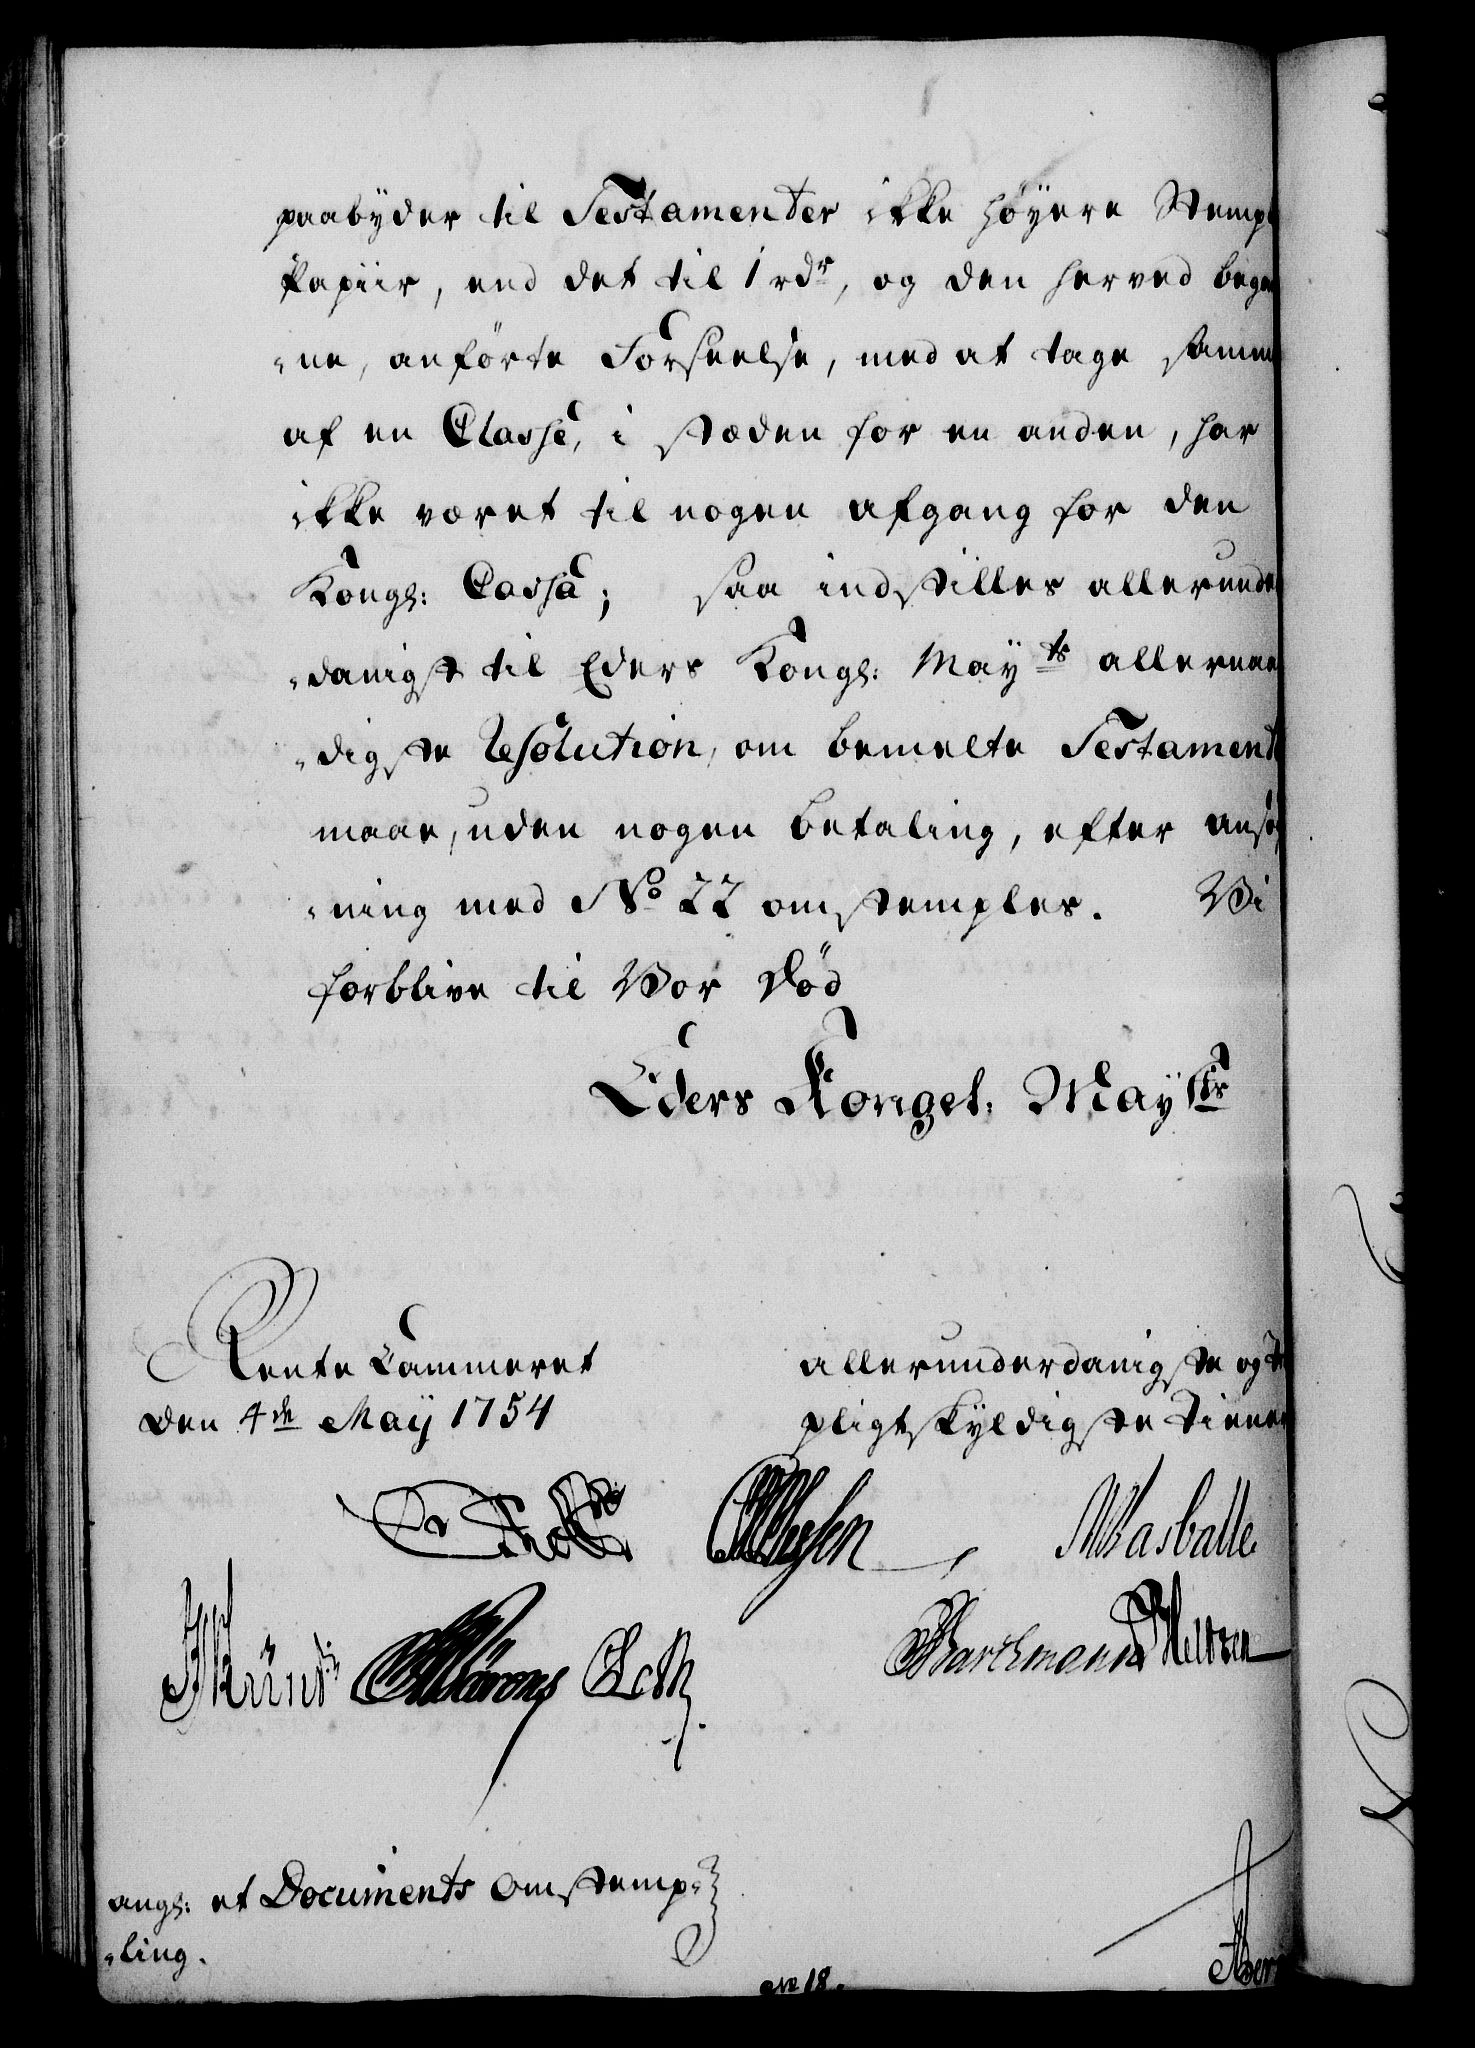 paabyder til Testamenter ikke høyere Stemp
Papiir, end det til 1 rdr, og den herved bega
-ne, anførte Forseelse, med at tage samm
af en Classe, i stæden for en anden, har
ikke været til nogen afgang for den
Kongl: Cassa; saa indstilles allerunder
-danigst til Eders Kongl: Mayts allernaa
-digste Resolution, om bemelte Testament
maae, uden nogen betaling, efter ansø
-ning med No 22 omstemples. Vi
forblive til Vor Død
Eders Kongel. Mayts
Rente Cammeret
den 4de Maij 1754
allerunderdanigste og
pligtskyldigste Tiener
Masballe
Barthmann
angl: et Documents omstemp-
-ling.
No 18.